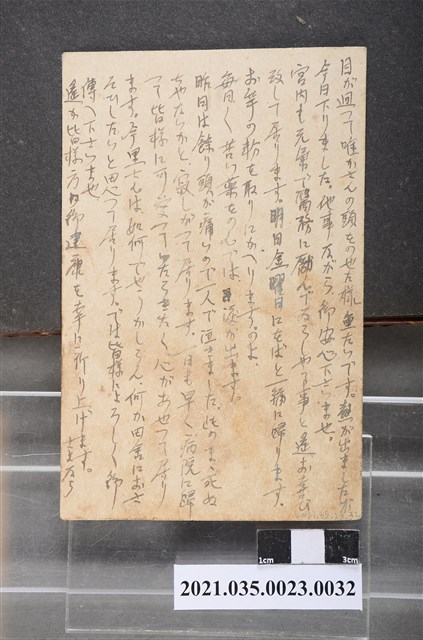 目が廻つて唯かさんの頭をのせた様 重たいです。熱が出ましたが
今日下りました。他事ながら御安心下さいませ。
宮内も元気で務に励んで
致して居ります。明日金曜日にをばと一緒に帰ります。
お米の粉を取りにかへりますのよ、
毎日く苦い薬をの心では、涙が出ます。
昨日は余り頭が痛いので一人で泣きました。此のまゝ死ぬ
ぢやないかと、寂しがつて居ります。一日も早く病院に帰
つて皆様に可愛つて
ます。今里さんは、如何でせうかしらん、何か田舎におさ
そひしたいと思つて居ります。では皆様によろしく御
傳へ下さいませ
遥か皆様方の御健康を幸に祈り上げます。
さよなら
1cm 3cm
2021.035.0023.0032